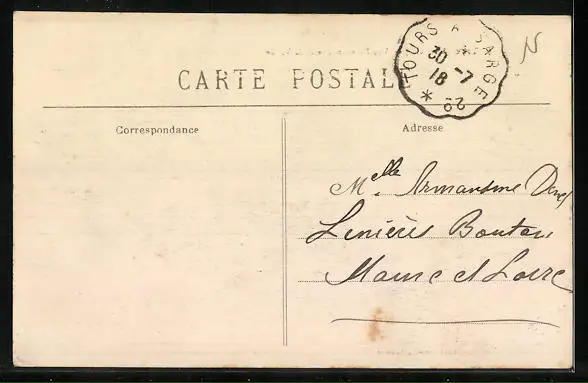 CARTE POSTALE
TOURS A SARGE
30 -7
18
29
*
N
Correspondance
Adresse
Melle Armantine
Linières Bouton
Maine et Loire